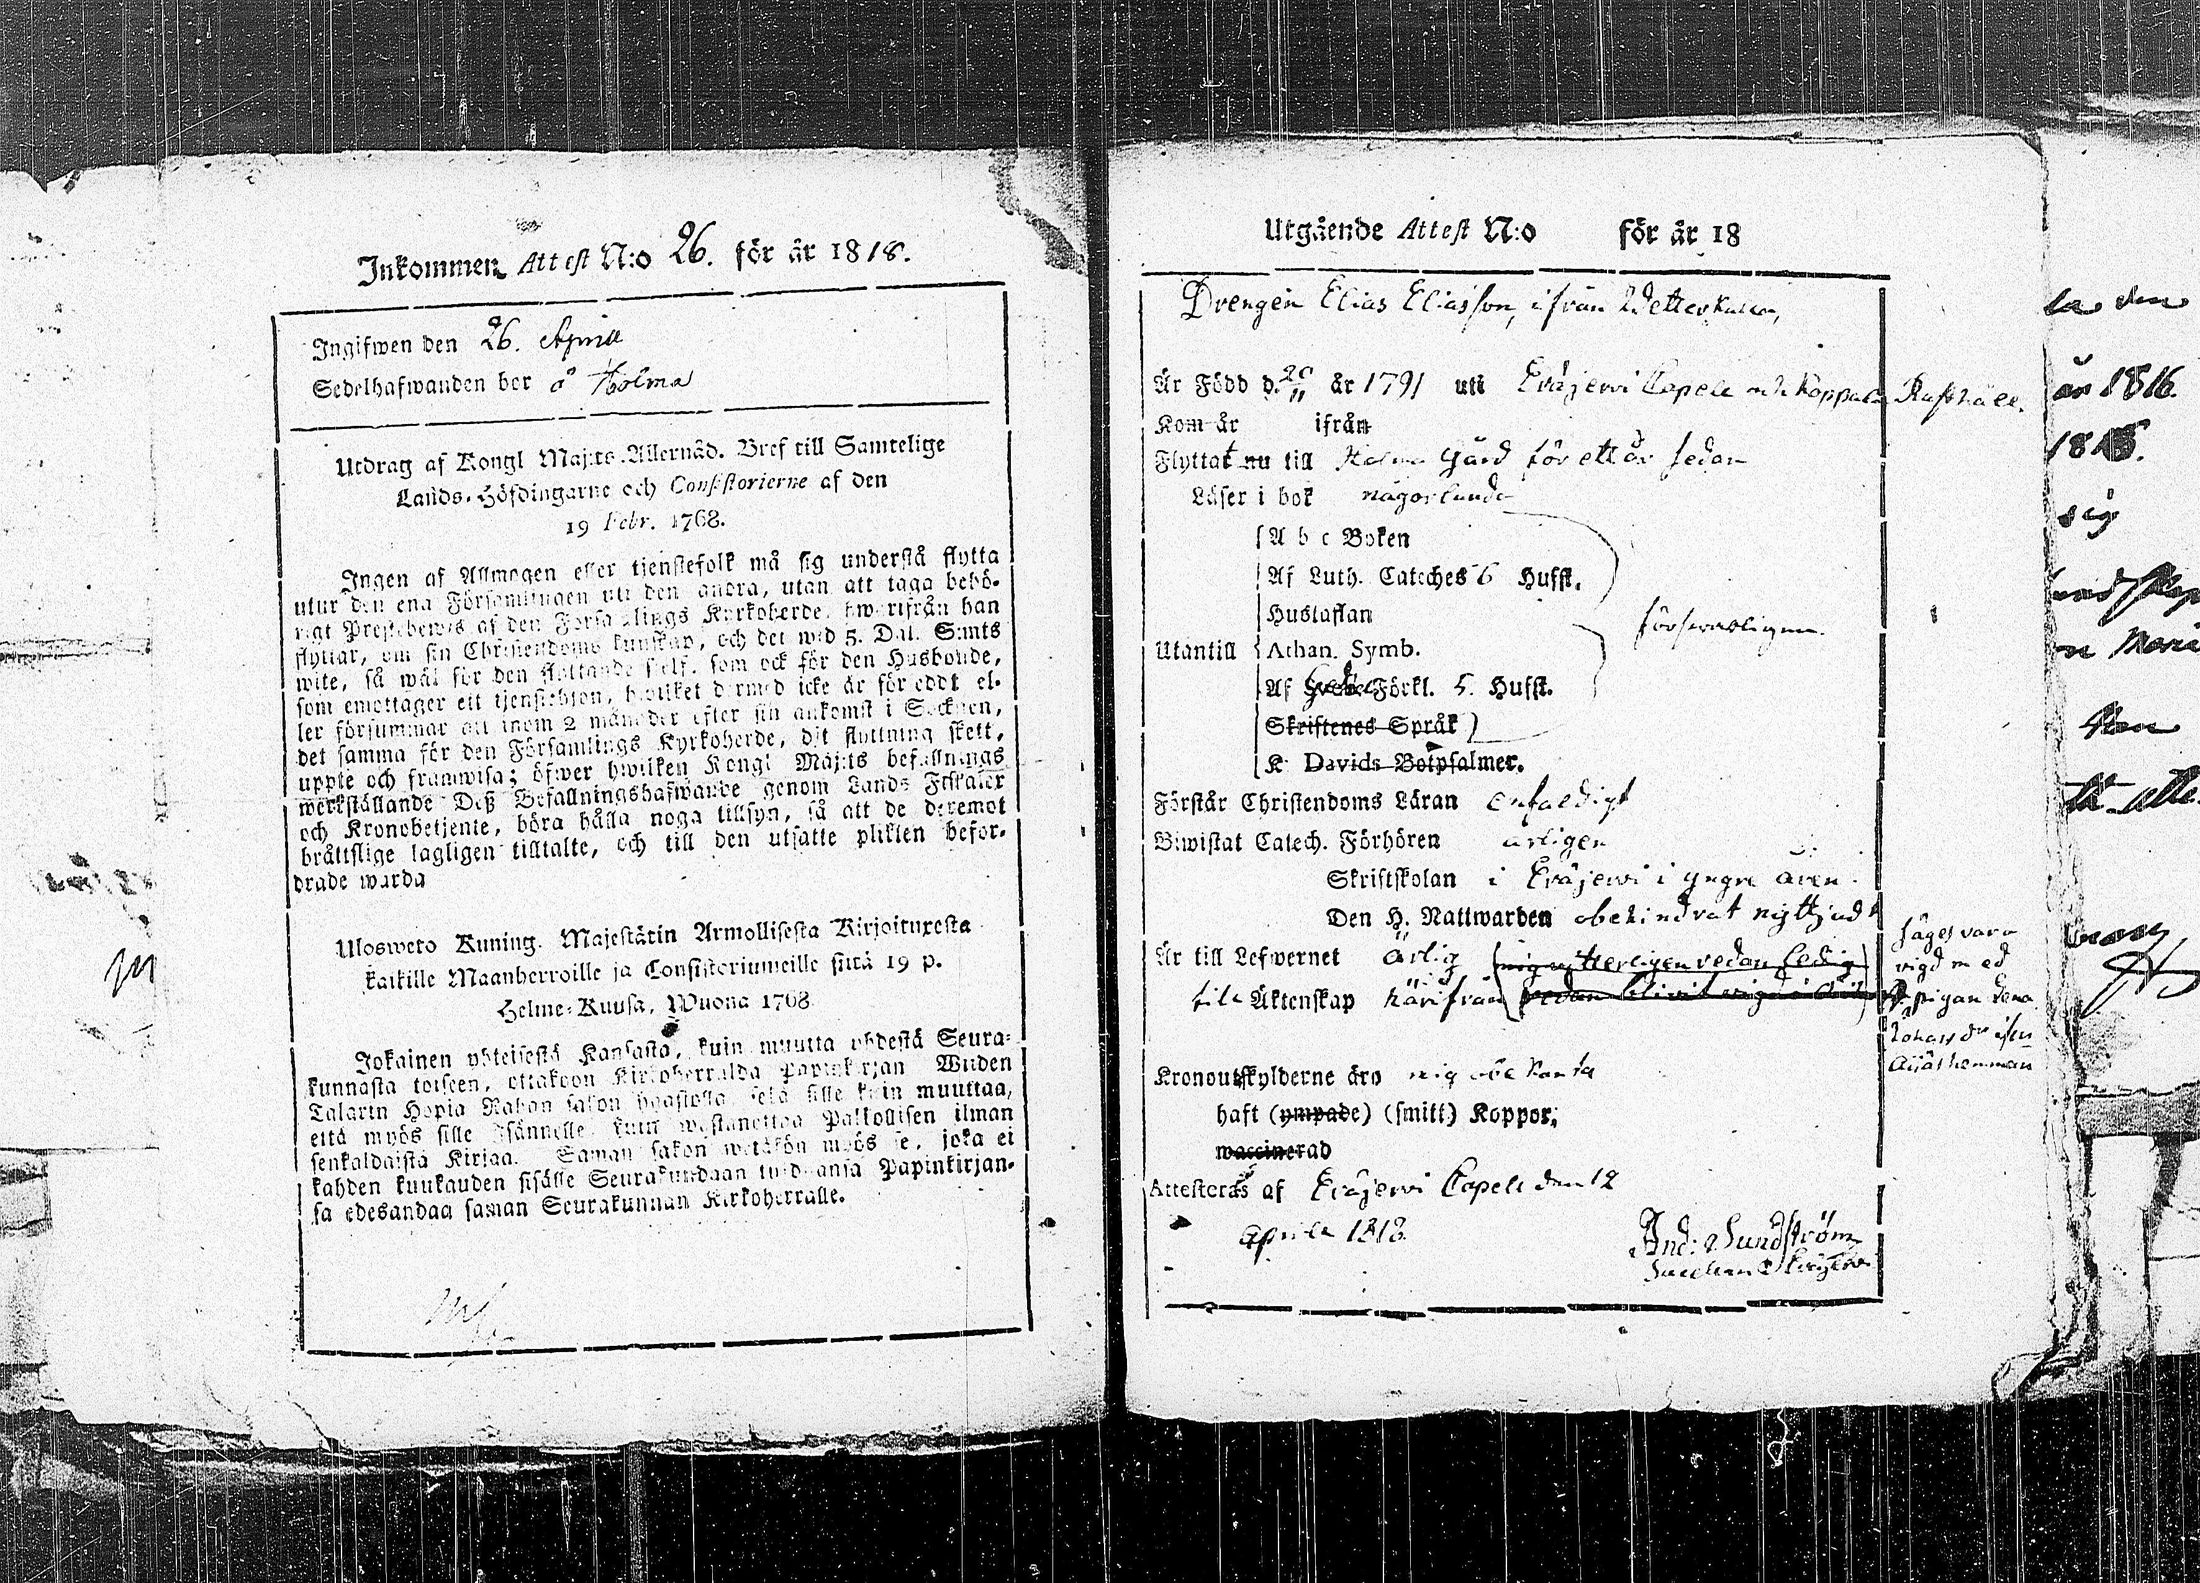 Inkommen Attest N:o 26. för år 1818.
Ingifwen den 26. Aprill
Sedelhafwanden bor å Holma
Utdrag af Kongl Maj:ts Allernåd. Bref till Samtelige
Lands-Höfdingarne och Consistorierne af den
19 Febr. 1768.
Ingen af Allmogen eller tjenstefolk må sig understå flytta
utur den ena Församlingen uti den andra, utan att taga behö-
rigt Prestebewis af den Församlings Kyrkoherde, hwarifrån han
flyttar, om sin Christendoms kunskap, och det wid 5. Dal. S:mts
wite, så wäl för den flyttande sjelf, som ock för den Husbonde,
som emottager ett tjenstehion, hwilket dermed icke är försedt el-
ler försummar att inom 2 månader efter sin ankomst i Socknen,
det samma för den Församlings Kyrkoherde, dit flyttning skett,
uppte och framwisa; öfwer hwilken Kongl Maj:ts befallnings
werkställande Deß Befallningshafwande genom Lands Fiskaler
och Kronobetjente, böra hålla noga tillsyn, så att de deremot
bråttslige lagligen tilltalte, och till den utsatte plikten befor-
drade warda
Ulosweto Kuning. Majestätin Armollisesta Kirjoituxesta
kaikille Maanherroille ja Consistoriumeille siitä 19 p.
Helme-Kuusa, Wuona 1768
Jokainen yhteisestä Kansasta, kuin muutta yhdestä Seura-
kunnasta toiseen, ottakoon Kirkoherralda Papinkirjan Wiiden
Talarin Hopia Rahan sakon haastolla, sekä sille kuin muuttaa,
että myös sille Isännelle, kuin wastanottaa Palkollisen ilman
senkaldaista Kirjaa. Saman sakon wetäkön myös se, joka ei
kahden kuukauden sisälle Seurakundaan tuldansa Papinkirjan-
sa edesandaa saman Seurakunnan Kirkoherralle.
Utgående Attest N:o för år 18
Drengen Elias Eliasson, ifrån
Är Född d. 20/11 år 1791 uti Eräjerwi Capell och Koppala Rusthåll.
Kom år ifrån
Flyttat nu till Holma Gård för ett år sedan
Läser i bok någorlunda
A b c Boken
Af Luth. Cateches 6 Hufst.
Hustaflan
Utantill Athan. Symb. försvarligen.
Af Förkl. 5. Hufst.
Skriftenes Språk
K. Davids Botpsalmer.
Förstår Christendoms Läran enfaldigt
Biwistat Catech. Förhören årligen
Skriftskolan i Eräjerwi i yngre åren.
Den H. Nattwarden obehindrat nyttjadt
Är till Lefwernet ärlig
till Äktenskap härifrån
säges vara
vigd med
pigan Lena
Kronoutskylderne äro mig obekanta
haft (ympade) (smitt) Koppor;
waccinerad
Attesteras af Eräjerwi Capell den 12
Aprill 1818.
And: Sundström
år 1816.
sig